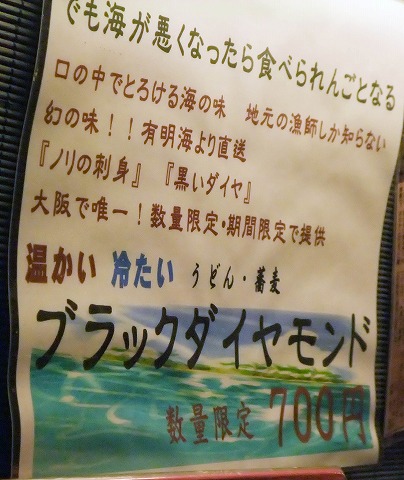 でも海が悪くなったら食べられんごとなる
口の中でとろける海の味　地元の漁師しか知らない
幻の味！！有明海より直送
『ノリの刺身』『黒いダイヤ』
大阪で唯一！数量限定・期間限定で提供
温かい 冷たい うどん・蕎麦
ブラックダイヤモンド
数量限定 700円